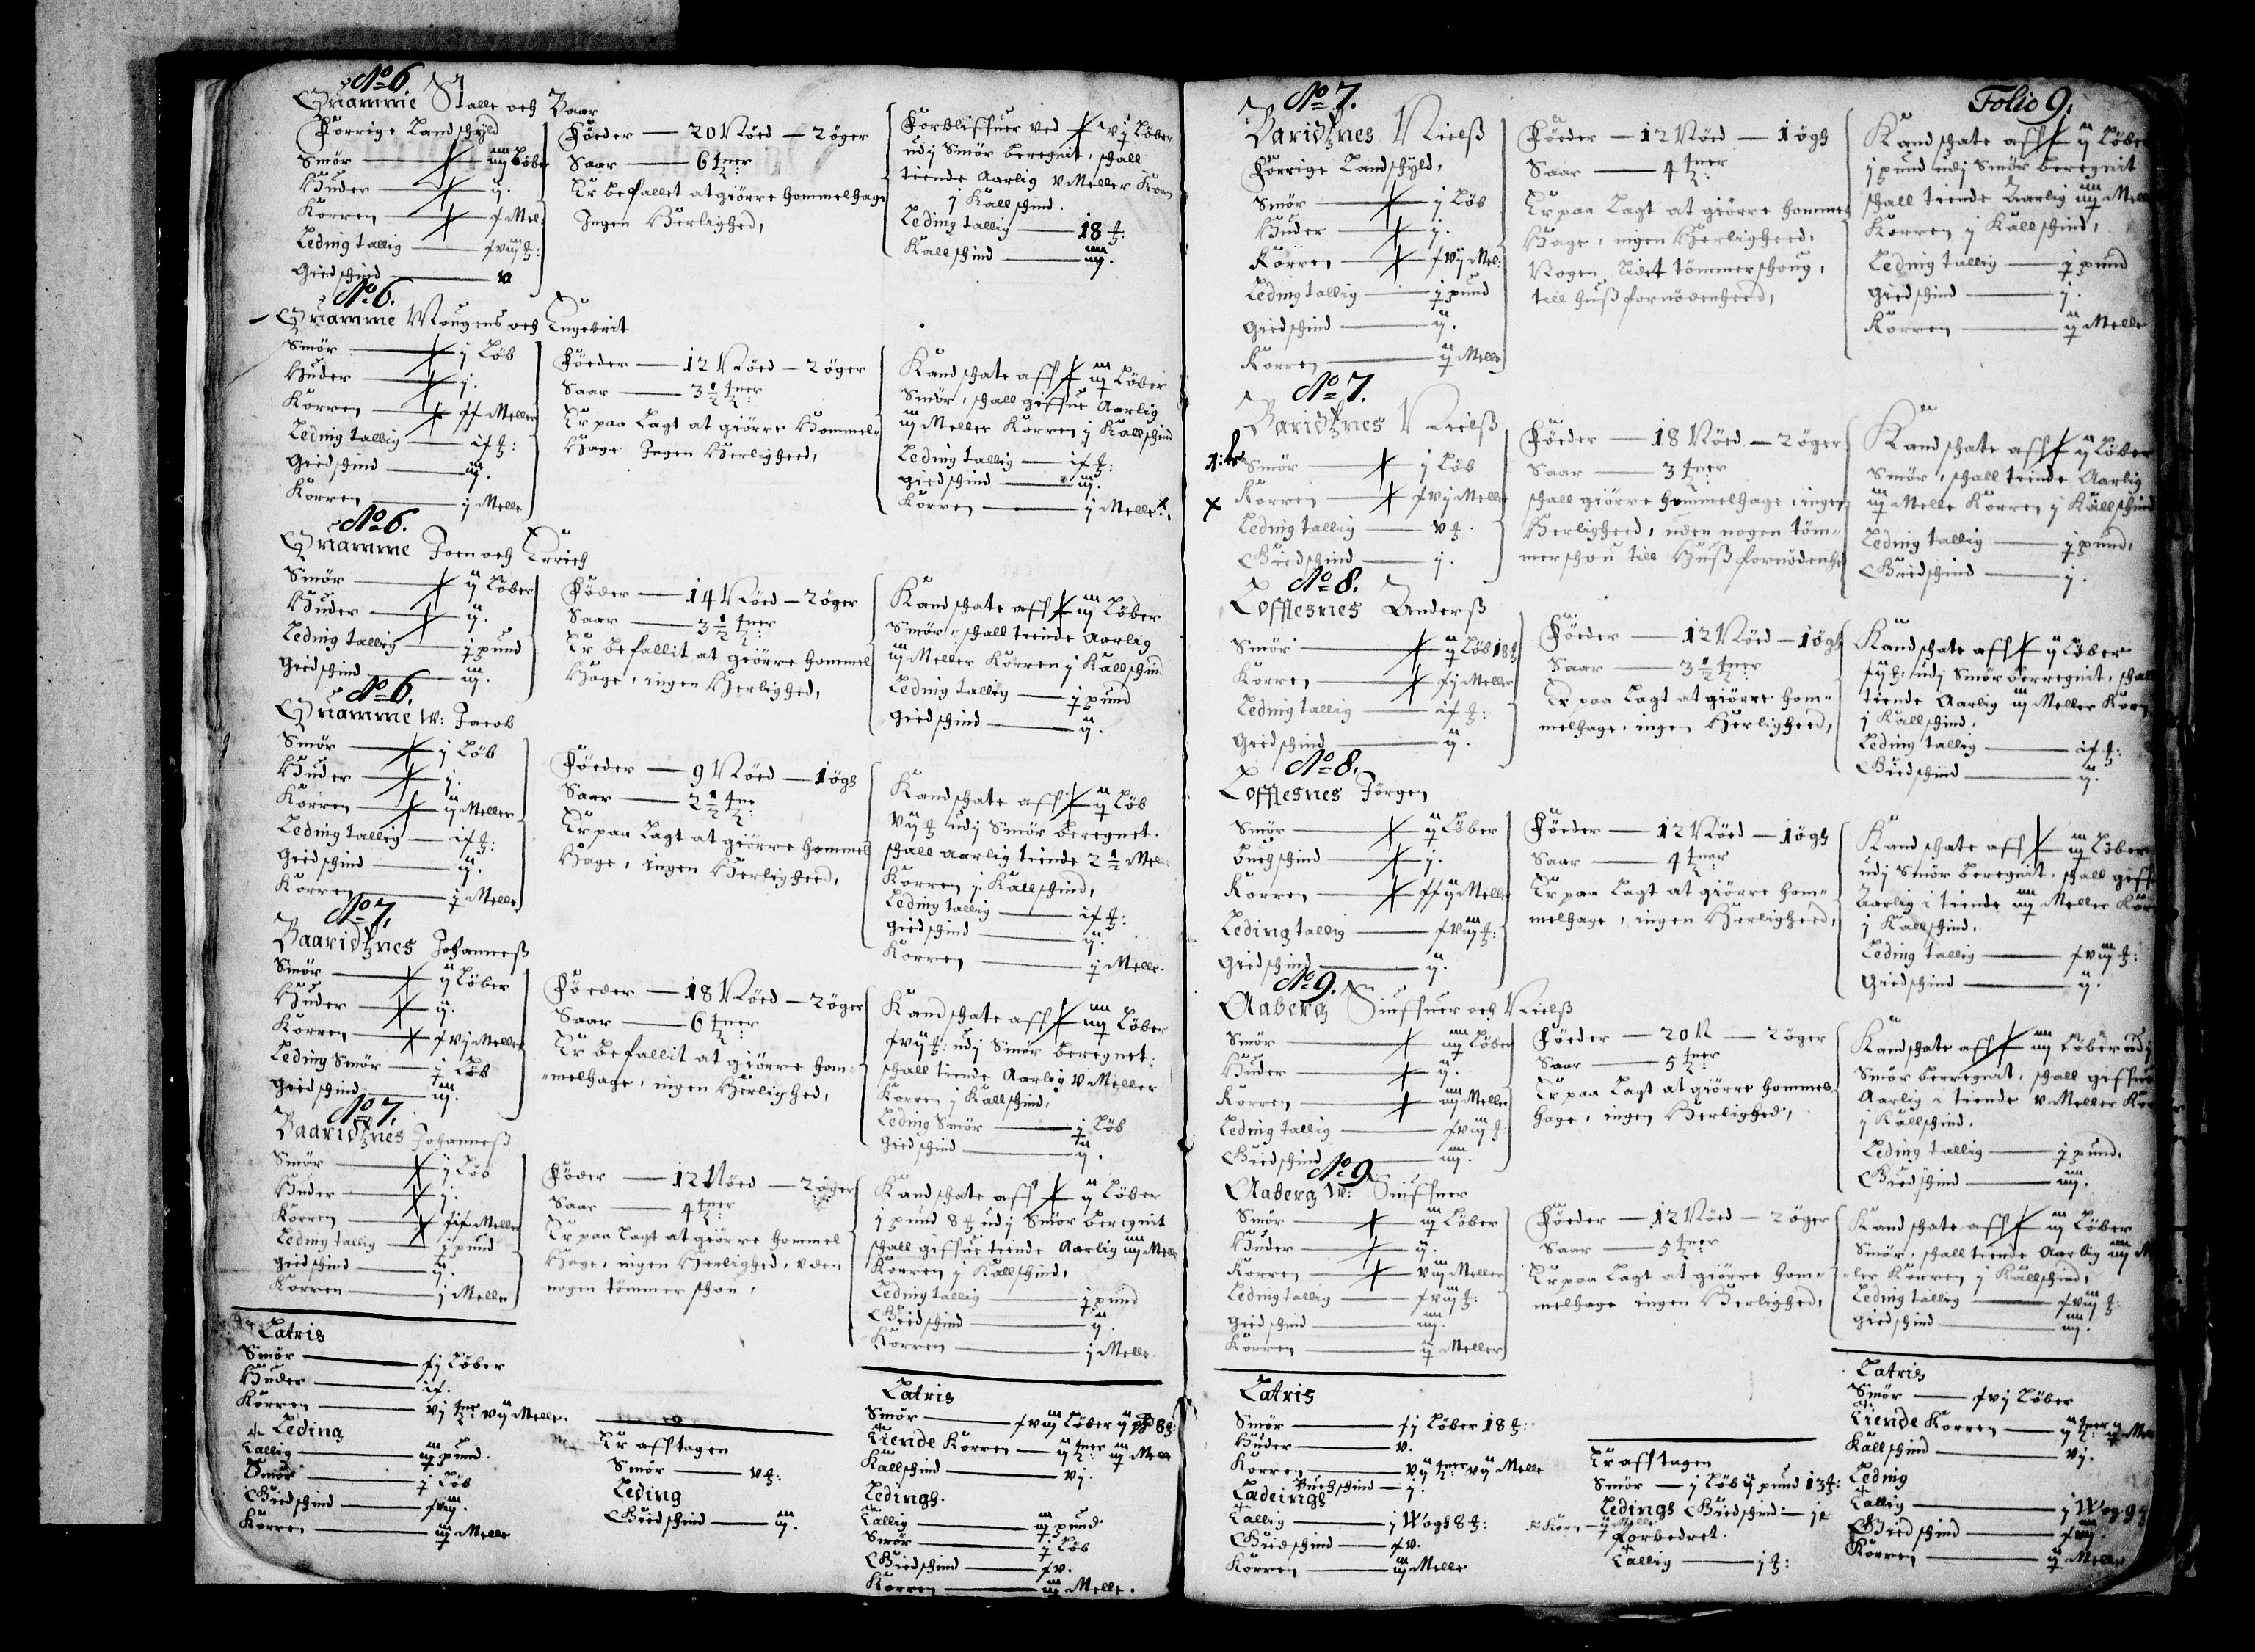 No 6.
Quamme Stalle och Baar
Forrige Landschyld
Smör iiij Löber
Huder ij.
Korren x Mel:
Leding tallig xviij ₰:
Giedschind v
Föeder — 20 Nöed — 2 öger
Saar — 6 tner
Er befallet at giörre hommelhage
Ingen Herlighed,
Forbliffuer ved vij Löber
udj Smör beregnit, schall
tiende Aarlig v Meller Korn
j Kallschind.
Leding tallig — 18 ₰:
Kallschind — iiij.
No 6.
Quamme Mougens och Engebrit
Smör j Löb
Huder j.
Korren xx Meller
Leding tallig ix ₰:
Giedschind iij.
Korren j Melle
Föeder — 12 Nöed — 2 öger
Saar — 3 1/2 tner
Er paa Lagt at giörre Hommel-
Hage Ingen Herligheed,
Kand schate aff iij Löber
Smör, schall giffue Aarlig
iij Meller Korren j Kallschind
Leding tallig — ix ₰:
giedschind — iij.
Korren — j Melle
No 6.
Quamme Joen och Errich
Smör ij Löber
Huder ij.
Leding tallig j pund
Giedschind iij.
Föder — 14 Nöed — 2 öger
Saar — 3 1/2 tner
Er befallit at giörre hommel
Hage, ingen Herlighed,
Kand schate aff iij Löber
Smör, schall tiende Aarlig
iij Meller Korren j Kallschind
Leding tallig — j pund
Giedschind — ij.
No 6.
Quamme W: Jacob
Smör j Löb
Huder j.
Korren ij Meller
Leding tallig — ix ₰:
Giedschind — ij.
Korren — j Melle
Föeder — 9 Nöed — 1 ögh
Saar — 2 1/2 tne
Er paa Lagt at giörre hommel
Hage, ingen Herligheed,
Kand schate aff ij Löb
vij ₰ udj Smör beregnet.
schall aarlig tiende 2 1/2 Mel
Korren j Kallschind,
Leding tallig — ix ₰:
giedschind — ij.
Korren — j Melle.
No 7.
Baaridtznes Johanneß
Smör ij Löber
Huder ij.
Korren xvj Meller
Leding Smör — j Löb
Giedschind — iiij.
Föeder — 18 Nöed — 2 öger
Saar — 6 tner
Er befallit at giörre hom-
melhage, ingen Herlighed,
Kand schate aff iiij Löber
xvij ₰: udj Smör beregnet:
schall tiende Aarlig v Meller
Korren j Kallschind,
Leding Smör — j Löb
Giedschind — ij.
No 7.
Baaridtznes Johanneß
Smör j Löb
Huder j.
Korren xix Meller
Leding tallig — j pund
giedschind — ij.
Korren — j Melle
Föder — 12 Nöed — 2 öger
Saar — 4 tner
Er paa Lagt at giörre hommel
Hage, ingen Herlighed, uden
nogen tömmer schou,
Kand schate aff ij Löber
j pund 8 ₰ udj Smör beregnit
schall giffue tiende Aarlig iiij Melle
Korren j Kallschind,
Leding tallig — j pund
Giedschind — ij.
Korren — j Melle.
Latris
Smör — xj Löber
Huder — ix.
Korren — vj tner vij Melle.
Leding
Tallig — iiij pund.
Smör — j Löb
Giedschind — xviij.
Korren — iij Melle
Er afftagen
Smör — v ₰:
Leding
Giedschind — iij.
Latris
Smör — xviij Löber ij pd 8 ₰:
Tiende Korren — ij tner iij Mell
Kallschind — vj.
Ledings.
Tallig — iiij pund
Smör — j Löb
Giedschind — xv.
Korren — iij Melle.
Folio 9.
No 7.
Baridtznes Nielß
Forrige Landschyld,
Smör j Löb
Huder j.
Korren xvij Mel:
Leding tallig — j pund
Giedschind — ij.
Korren — ij Melle
Föeder — 12 Nöed — 1 ögh
Saar — 4 tner
Er paa Lagt at giörre hommel
Hage, ingen Herligheed,
Nogen Lidet tömmerschoug,
till huß fornödenheed,
Kand schate aff ij Löber
j pund udj Smör beregnit
schall tiende Aarlig iiij Mell
Korren j Kallschind,
Leding tallig — j pund
Giedschind — j.
Korren — ij Melle
No 7.
Baridtznes Nielß
Smör j Löb
Korren xvj Melle
Leding tallig — v ₰.
Giedschind — j.
Föeder — 18 Nöed — 2 öger
Saar — 3 tner
schall giörre hommelhage, ingen
Herligheed, uden nogen töm-
merschou till Huß fornödenhe
Kand schate aff ij Löber
Smör, schall tiende Aarlig
iij Melle Korren j Kallschind
Leding tallig — j pund,
Giedschind — j.
No 8.
Lofflesnes Anderß
Smör ij Löb 18 ₰
Korren xj Meller
Leding tallig — ix ₰:
Giedschind — ij.
Föeder — 12 Nöed — 1 ögh
Saar — 3 1/2 tner
Er paa Lagt at giörre hom-
melhage, ingen Herligheed,
Kand schate aff ij Löber
xij ₰: udj Smör berregnit, schall
tiende Aarlig iij Meller Korn
j Kallschind,
Leding tallig — ix ₰:
Giedschind — ij.
No 8.
Lofflesnes Jörgen
Smör ij Löber
Buchschind j.
Korren xxij Melle
Leding tallig — xviij ₰:
Giedschind — ij.
Föeder — 12 Nöed — 1 ögh
Saar — 4 tner
Er paa Lagt at giörre hom-
melhage, ingen Herligheed,
Kand schate aff iij Löber
udj Smör beregnit, schall giff
Aarlig i tiende iiij Meller Kor
j Kallschind,
Leding tallig — xviij ₰:
Giedschind — ij.
No 9.
Aaberg Siuffuer och Nielß
Smör iiij Löber
Huder ij.
Korren iiij Meller
Leding tallig — xviij ₰:
Giedschind — iiij.
Föeder — 20 N — 2 öger
Saar — 5 tner
Er paa Lagt at giörre hommel
hage, ingen Herlighed,
Kand schate aff iiij Löber udj
Smör berregnit, schall giffue
Aarlig i tiende v Meller Kor
j Kallschind,
Leding tallig — j pund,
Giedschind — iiij.
No 9.
Aaberg W: Siuffuer
Smör iij Löber
Huder ij.
Korren viij Meller
Leding tallig — xviij ₰:
Giedschind — iiij.
Korren — ij Meller
Föeder — 12 Nöed — 2 öger
Saar — 5 tner
Er paa Lagt at giörre hom-
melhage ingen Herlighed,
Kand schate aff iij Löber
Smör, schall tiende Aarlig iiij M
ler Korren j Kallschind,
Leding tallig — xviij ₰:
Giedschind — iiij.
Latris
Smör — xj Löber 18 ₰:
Huder — v.
Korren — vij tner vij Melle
Buchschind — j.
Ladeings
Tallig — j Wogh 8 ₰:
Giedschind — xv.
Korren — iij Melle
Er afftagen
Smör — j Löb ij pund 13 ₰:
Ledings Giedschind — j
Korn — ij Melle
Forbedret.
Tallig — j ₰:
Latris
Smör — xvj Löber
Tiende Korren — ij tner ij Mell
Kallschind — vj.
Leding
Tallig — j Wog 9 ₰
Giedschind — xiiij.
Korren — ij Melle